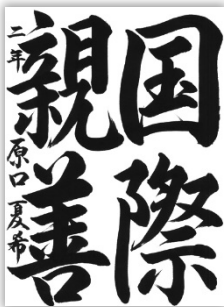 国際
親善
二年 原口夏希